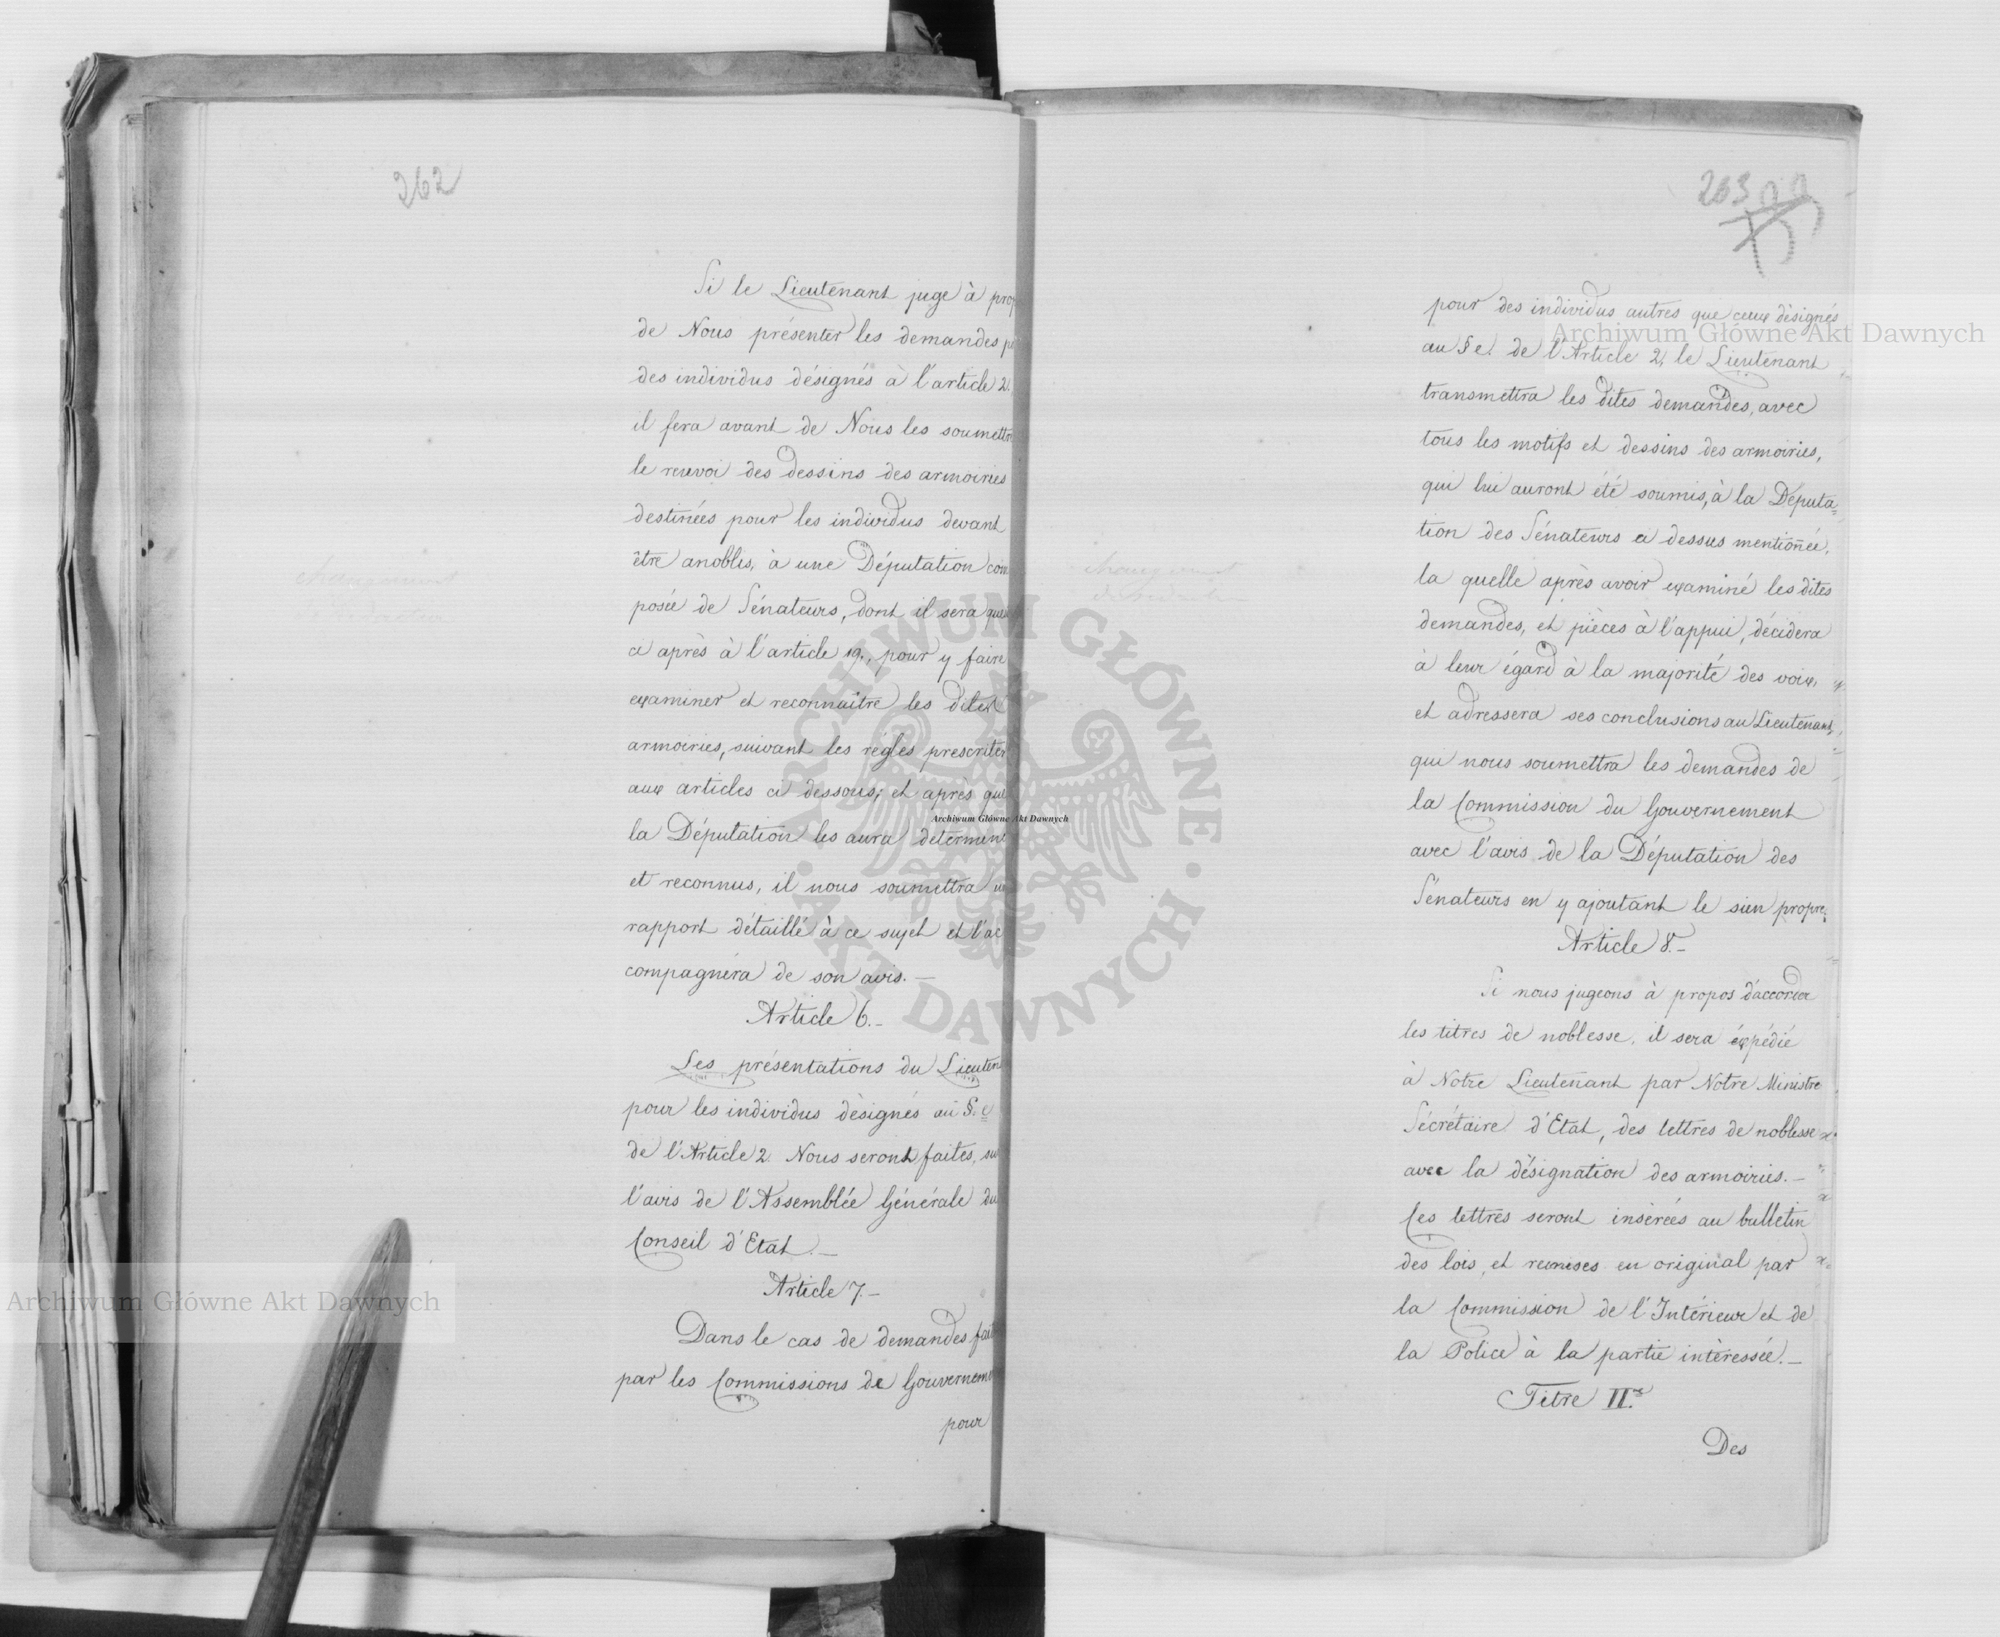 262
Si le Lieutenant juge à prop
de Nous présenter les demandes p
des individus désignés à l'article 2.
il fera avant de Nous les soumettre
le renvoi des dessins des armoiries
destinées pour les individus devant
être anoblis, à une Députation com
posée de Sénateurs, dont il sera
ci après à l'article 19., pour y faire
examiner et reconnaitre les dites
armoiries, suivant les régles prescrites
aux articles ci dessous; et après que
la Députation les aura determin
et reconnus, il nous soumettra un
rapport détaillé à ce sujet et l'ac
compagnera de son avis.—
Article 6.—
Les présentations du Lieuten
pour les individus désignés au §. e
de l'Article 2. Nous seront faites, su
l'avis de l'Assemblée Générale du
Conseil d'Etat.—
Article 7.—
Dans le cas de demandes fait
par les Commissions de Gouvernem
pour
changement
263
pour des individus autres que ceux désignés
au § e. de l'Article 2, le Lieutenant
transmettra les dites demandes, avec
tous les motifs et dessins des armoiries,
qui lui auront été soumis, à la Députa=
tion des Sénateurs ci dessus mentioñée,
la quelle après avoir examiné les dites
demandes, et pièces à l'appui, décidera
à leur égard à la majorité des voix,
et adressera ses conclusions au Lieutenant,
qui nous soumettra les demandes de
la Commission du Gouvernement
avec l'avis de la Députation des
Sénateurs en y ajoutant le sien propre.
Article 8.—
Si nous jugeons à propos d'accorder
les titres de noblesse, il sera éxpédié
à Notre Lieutenant par Notre Ministre
Sécrétaire d'Etat, des lettres de noblesse
avec la désignation des armoiries.—
Ces lettres seront insérées au bulletin
des lois, et remises en original par
la Commission de l'Intérieur et de
la Police à la partie intèressée.—
Titre II.
Des
Archiwum Główne Akt Dawnych
Archiwum Główne Akt Dawnych
Archiwum Główne Akt Dawnych
ARCHIWUM GŁÓWNE · AKT DAWNYCH ·